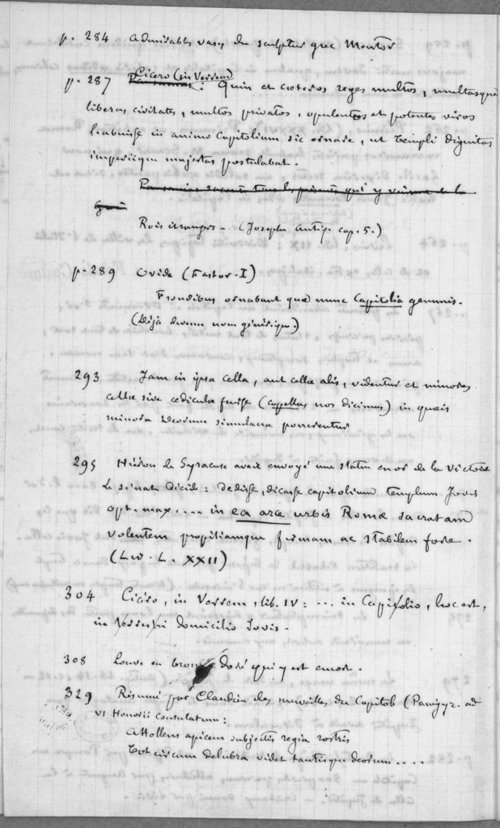 p. 284 Admirables vases du sculpteur grec Mentor
p. 287 Cicero (in Verrem) : Quin et cœteros reges multos, multasque
liberas civitates, multos privatos, opulentos et potentes viros
habuisse in animo Capitolium sic ornare, ut templi dignitas
imperiique majestas postulabat.
Rois étrangers - (Joseph Antiq. cap. 5.)
p. 289 Ovide (Fastor. I)
Frondibus ornabant quæ nunc Capitolia gemmis.
(déjà devenu nom générique)
293 Jam in ipsa cella, aut cellæ aliis, videntur et minores
cellæ sive ædiculæ fuisse (cappellas nos dicimus) in queis
minora Deorum simulacra ponerentur
295 Hiéron de Syracuse avait envoyé une statue en or de la Victoire
Le sénat décide : dedisse, dicasse capitolium templum Jovis
opt. max.... in ea arce urbis Romæ sacratam
volentem propitiamque firmam ac stabilem fore.
(Liv. L. XXII)
304 Cicéro, in Verrem, lib. IV : ... in Capitolio, hoc est,
in terrestri domicilio Jovis.
308 Louve en bronze doré qui y est encore.
329 Résumé par Claudien des merveilles du Capitole (Panégyr. ad
VI Honorii consulatum :
Attollens apicem subjectis regia rostris
Tot circum delubra videt tantisque deorum ....